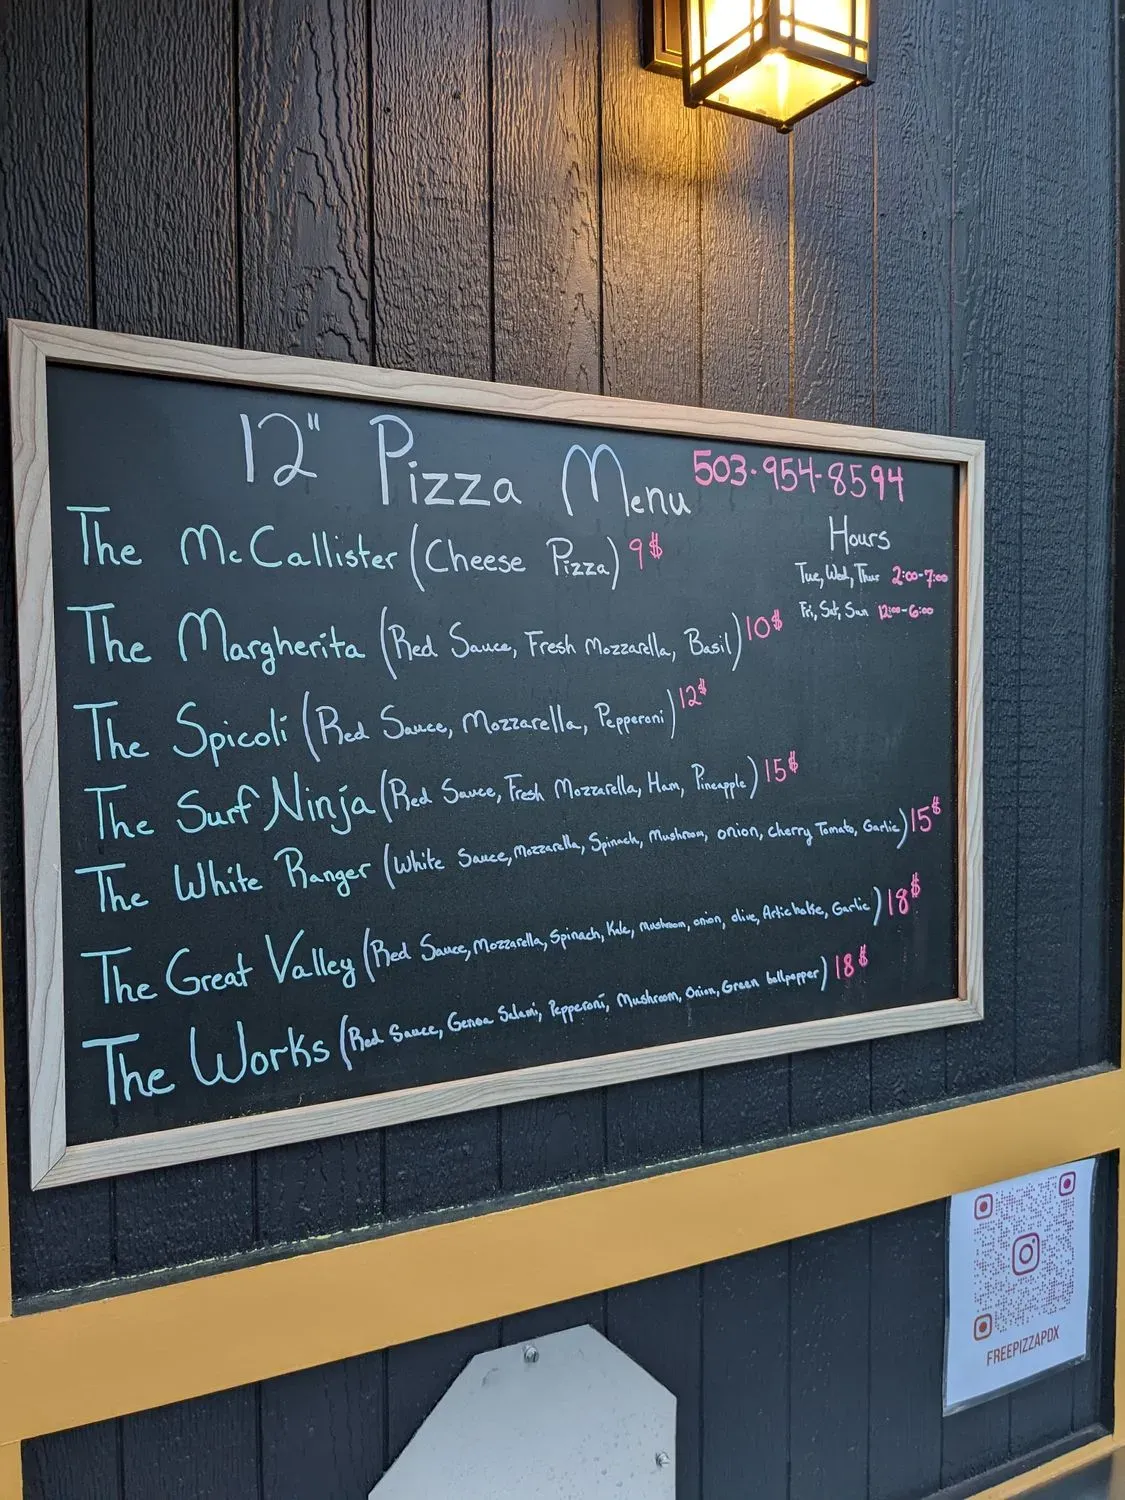 12" Pizza Menu
503-954-8594
The McCallister (Cheese Pizza) 9$
Hours
Tue, Wed, Thur 2:00-7:00
Fri, Sat, Sun 12:00-6:00
The Margherita (Red Sauce, Fresh Mozzarella, Basil) 10$
The Spicoli (Red Sauce, Mozzarella, Pepperoni) 12$
The Surf Ninja (Red Sauce, Fresh Mozzarella, Ham, Pineapple) 15$
The White Ranger (White Sauce, Mozzarella, Spinach, Mushroom, onion, cherry Tomato, Garlic) 15$
The Great Valley (Red Sauce, Mozzarella, Spinach, Kale, Mushroom, onion, olive, Artichoke, Garlic) 18$
The Works (Red Sauce, Genoa Salami, Pepperoni, Mushroom, Onion, Green bellpepper) 18$
FREEPIZZAPDX